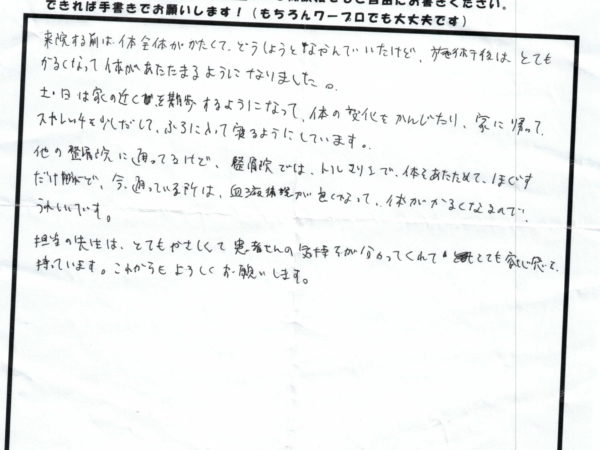 できれば手書きでお願いします！（もちろんワープロでも大丈夫です）
来院する前は体全体がかたくて、どうしようとなやんでいたけど、 は とても
かるくなって体があたたまるようになりました。
土・日は家の近くを散歩するようになって、体の変化をかんじたり、家に帰って、
ストレッチを少しだして、ふろに入って寝るようにしています。
他の整骨院に通ってるけど、整骨院では、 で、体をあたためて、ほぐす
だけ 、今、通っている所は、血液 が良くなって、体がかるくなるので、
うれしいです。
担当の先生は、とてもやさしくて患者さんの気持ちが分かってくれて とても
持っています。これからもよろしくお願いします。